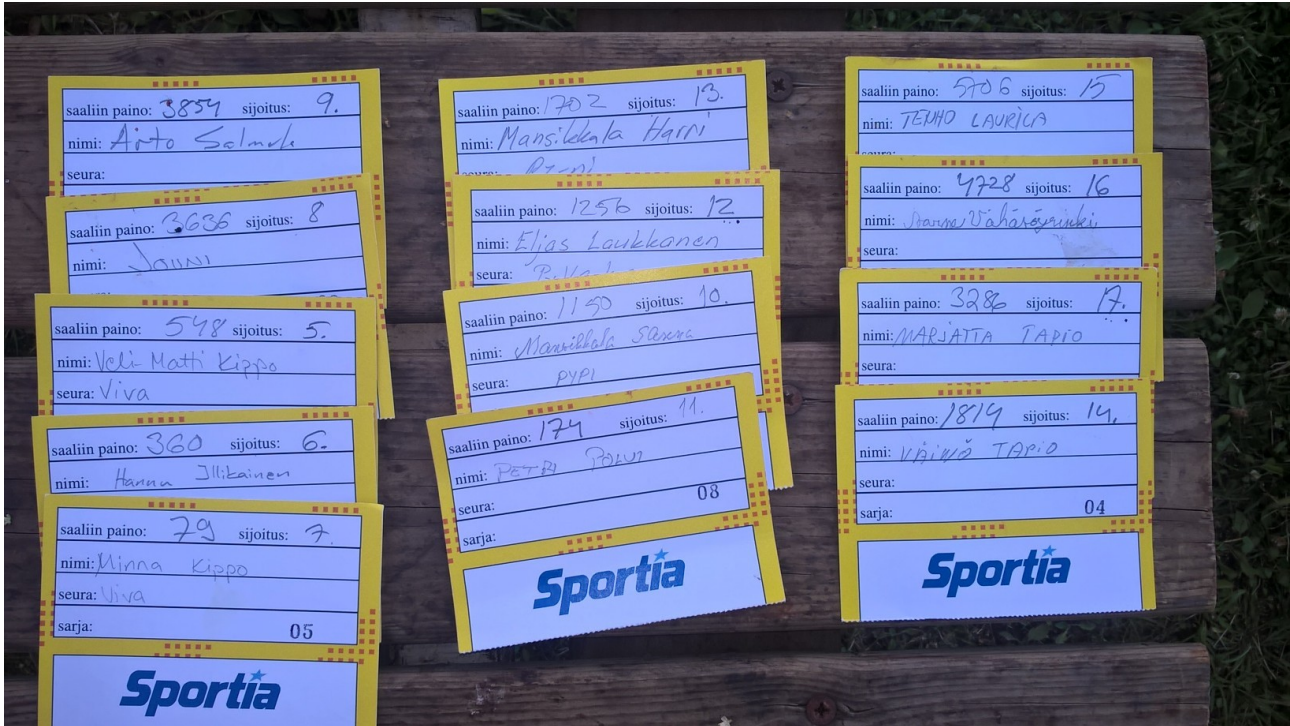 saaliin paino: 3854 sijoitus: 9.
nimi: Arto
seura:
saaliin paino: 3636 sijoitus: 8
nimi: JOUNI
saaliin paino: 548 sijoitus: 5.
nimi: Veli-Matti Kippo
seura: Viva
saaliin paino: 360 sijoitus: 6.
nimi: Hannu Illikainen
saaliin paino: 79 sijoitus: 7.
nimi: Minna Kippo
seura: Viva
sarja: 05
Sportia
saaliin paino: 1702 sijoitus: 13.
nimi: Mansikkala Harri
saaliin paino: 1256 sijoitus: 12
nimi: Eljas Laukkanen
seura:
saaliin paino: 1190 sijoitus: 10.
nimi: Mansikkala Sanna
seura: PYPI
saaliin paino: 174 sijoitus: 11.
nimi: PETRI
seura: 08
sarja:
Sportia
saaliin paino: 5706 sijoitus: 15
nimi: TENHO LAURILA
saaliin paino: 4728 sijoitus: 16
nimi:
seura:
saaliin paino: 3286 sijoitus: 17.
nimi: MARJATTA TAPIO
seura:
saaliin paino: 1819 sijoitus: 14.
nimi: VÄINÖ TAPIO
seura:
sarja: 04
Sportia